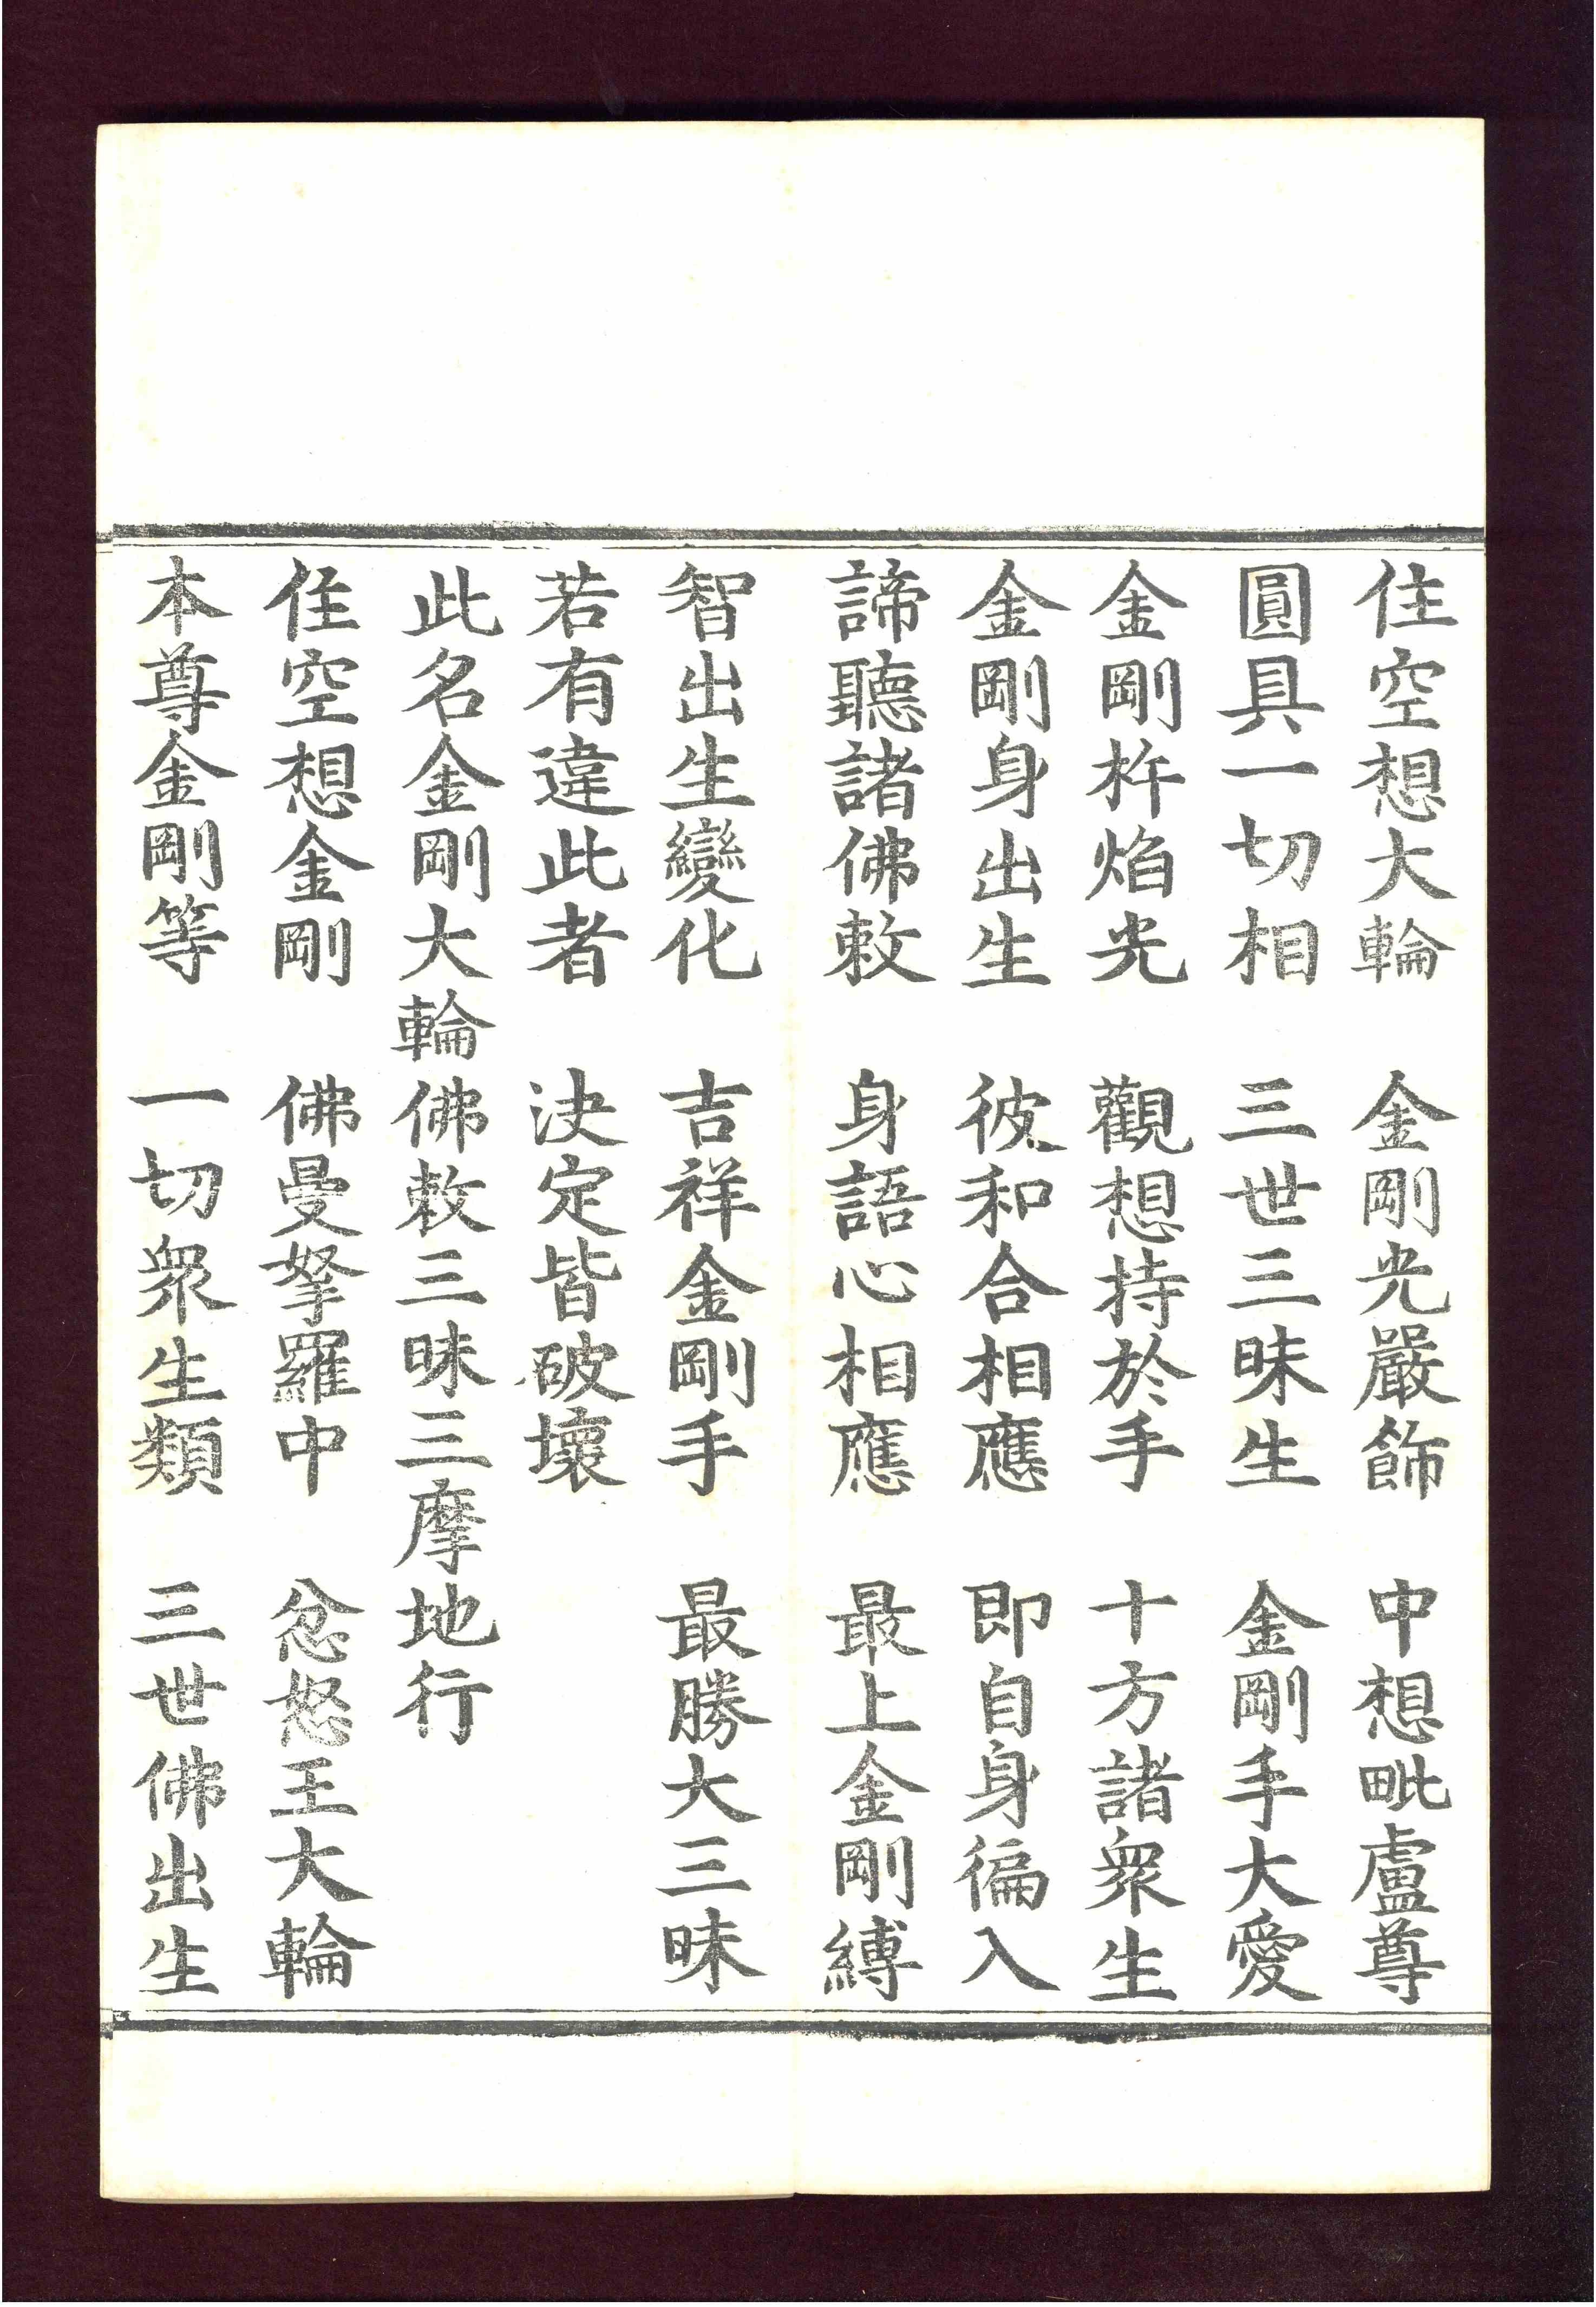 住空想大輪　金剛光嚴飾　中想毗盧尊
圓具一切相　三世三昧生　金剛手大愛
金剛杵焰光　觀想持於手　十方諸衆生
金剛身出生　彼和合相應　即自身徧入
諦聽諸佛敕　身語心相應　最上金剛縛
智出生變化　吉祥金剛手　最勝大三昧
若有違此者　決定皆破壞
此名金剛大輪佛敕三昧三摩地行
住空想金剛　佛曼拏羅中　忿怒王大輪
本尊金剛等　一切衆生類　三世佛出生